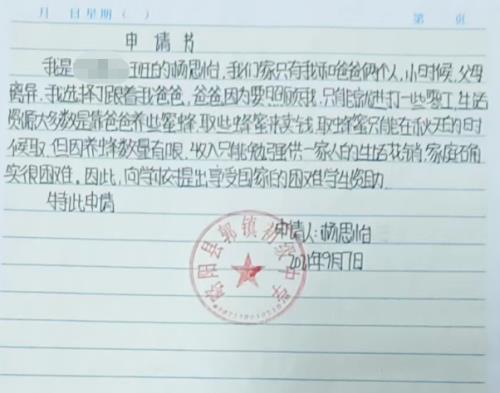 月 日 星期（ ） 第 页
申请书
我是 班的杨思怡，我们家只有我和爸爸俩个人，小时候，父母
离异。我选择了跟着我爸爸，爸爸因为要照顾我，只能就近打一些零工，生活
资源大多数是靠爸爸养些蜜蜂，取些蜂蜜来卖钱，取蜂蜜只能在秋天的时
候取，但因养蜂数量有限，收入只能勉强供一家人的生活花销，家庭石角
实很困难，因此，向学校提出享受国家的困难学生资助。
特此申请
申请人：杨思怡
2021年9月7日
略阳县郭镇初级中学